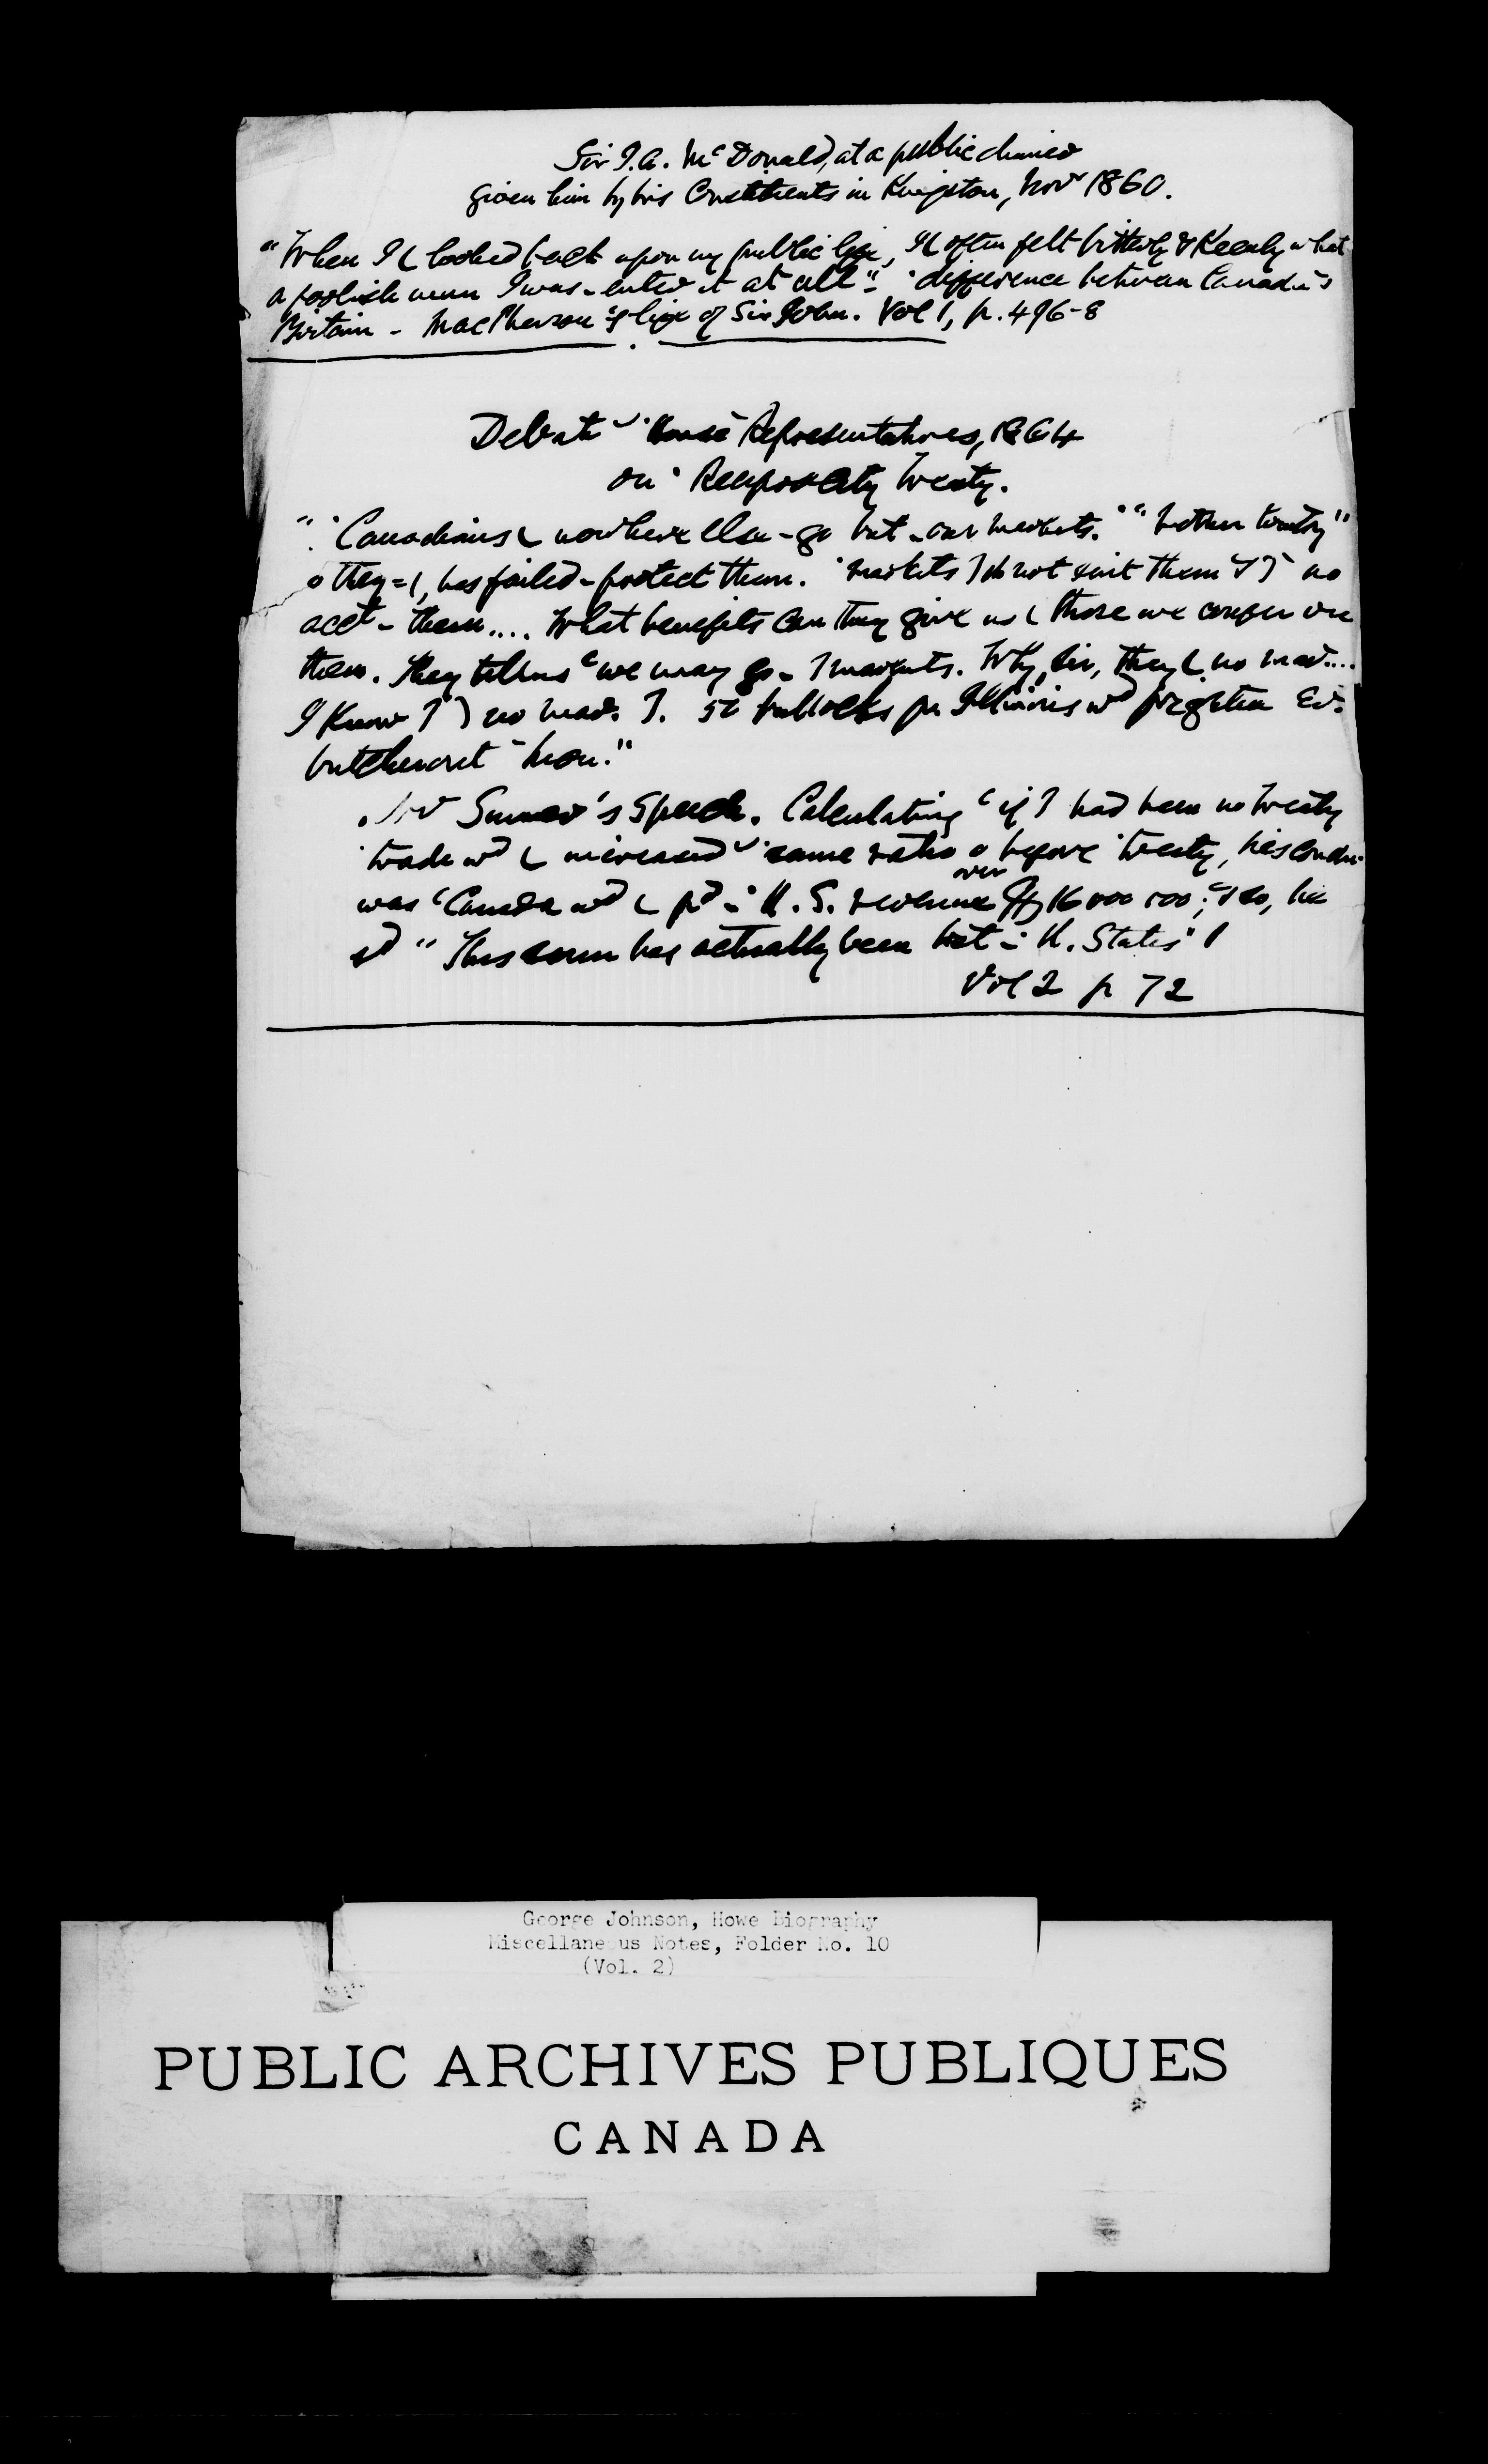 Sir J.A. McDonald, at a public dinner
given him by his Constituents in Kingston, Novr 1860.
"When I ( looked back upon my public life, I ( often felt bitterly & Keenly what
a foolish man I was - enter it at all". ' difference between Canada &
Britain - MacPherson's life of Sir John. Vol 1, p. 496-8
Debate House Representatives, 1864
on ' Reciprocity Treaty.
" ' Canadians ( nowhere else - go but - our markets." "mother country"
o they = (, has failed - protect them. ' markets do not suit them & no
acct - them.... What benefits can they give us ( those we confer on
them. They tell us c we may go - markets. Why, Sir, they ( no mar....
I Know no mar. 50 bullocks fm Illinois wd frighten ev.
butcher out - him."
Sumner's Speech. Calculating c if had been no treaty
' trade wd ( increased ' same ratio o before ' treaty, his
was c Canada wd ( pd - ' U.S. revenue over 16 000 000; & so, he
sd "This sum has actually been lost - ' U. States" !
Vol 2 p 72
George Johnson, Howe Biography
Miscellaneous Notes, Folder No. 10
(Vol. 2)
PUBLIC ARCHIVES PUBLIQUES
CANADA